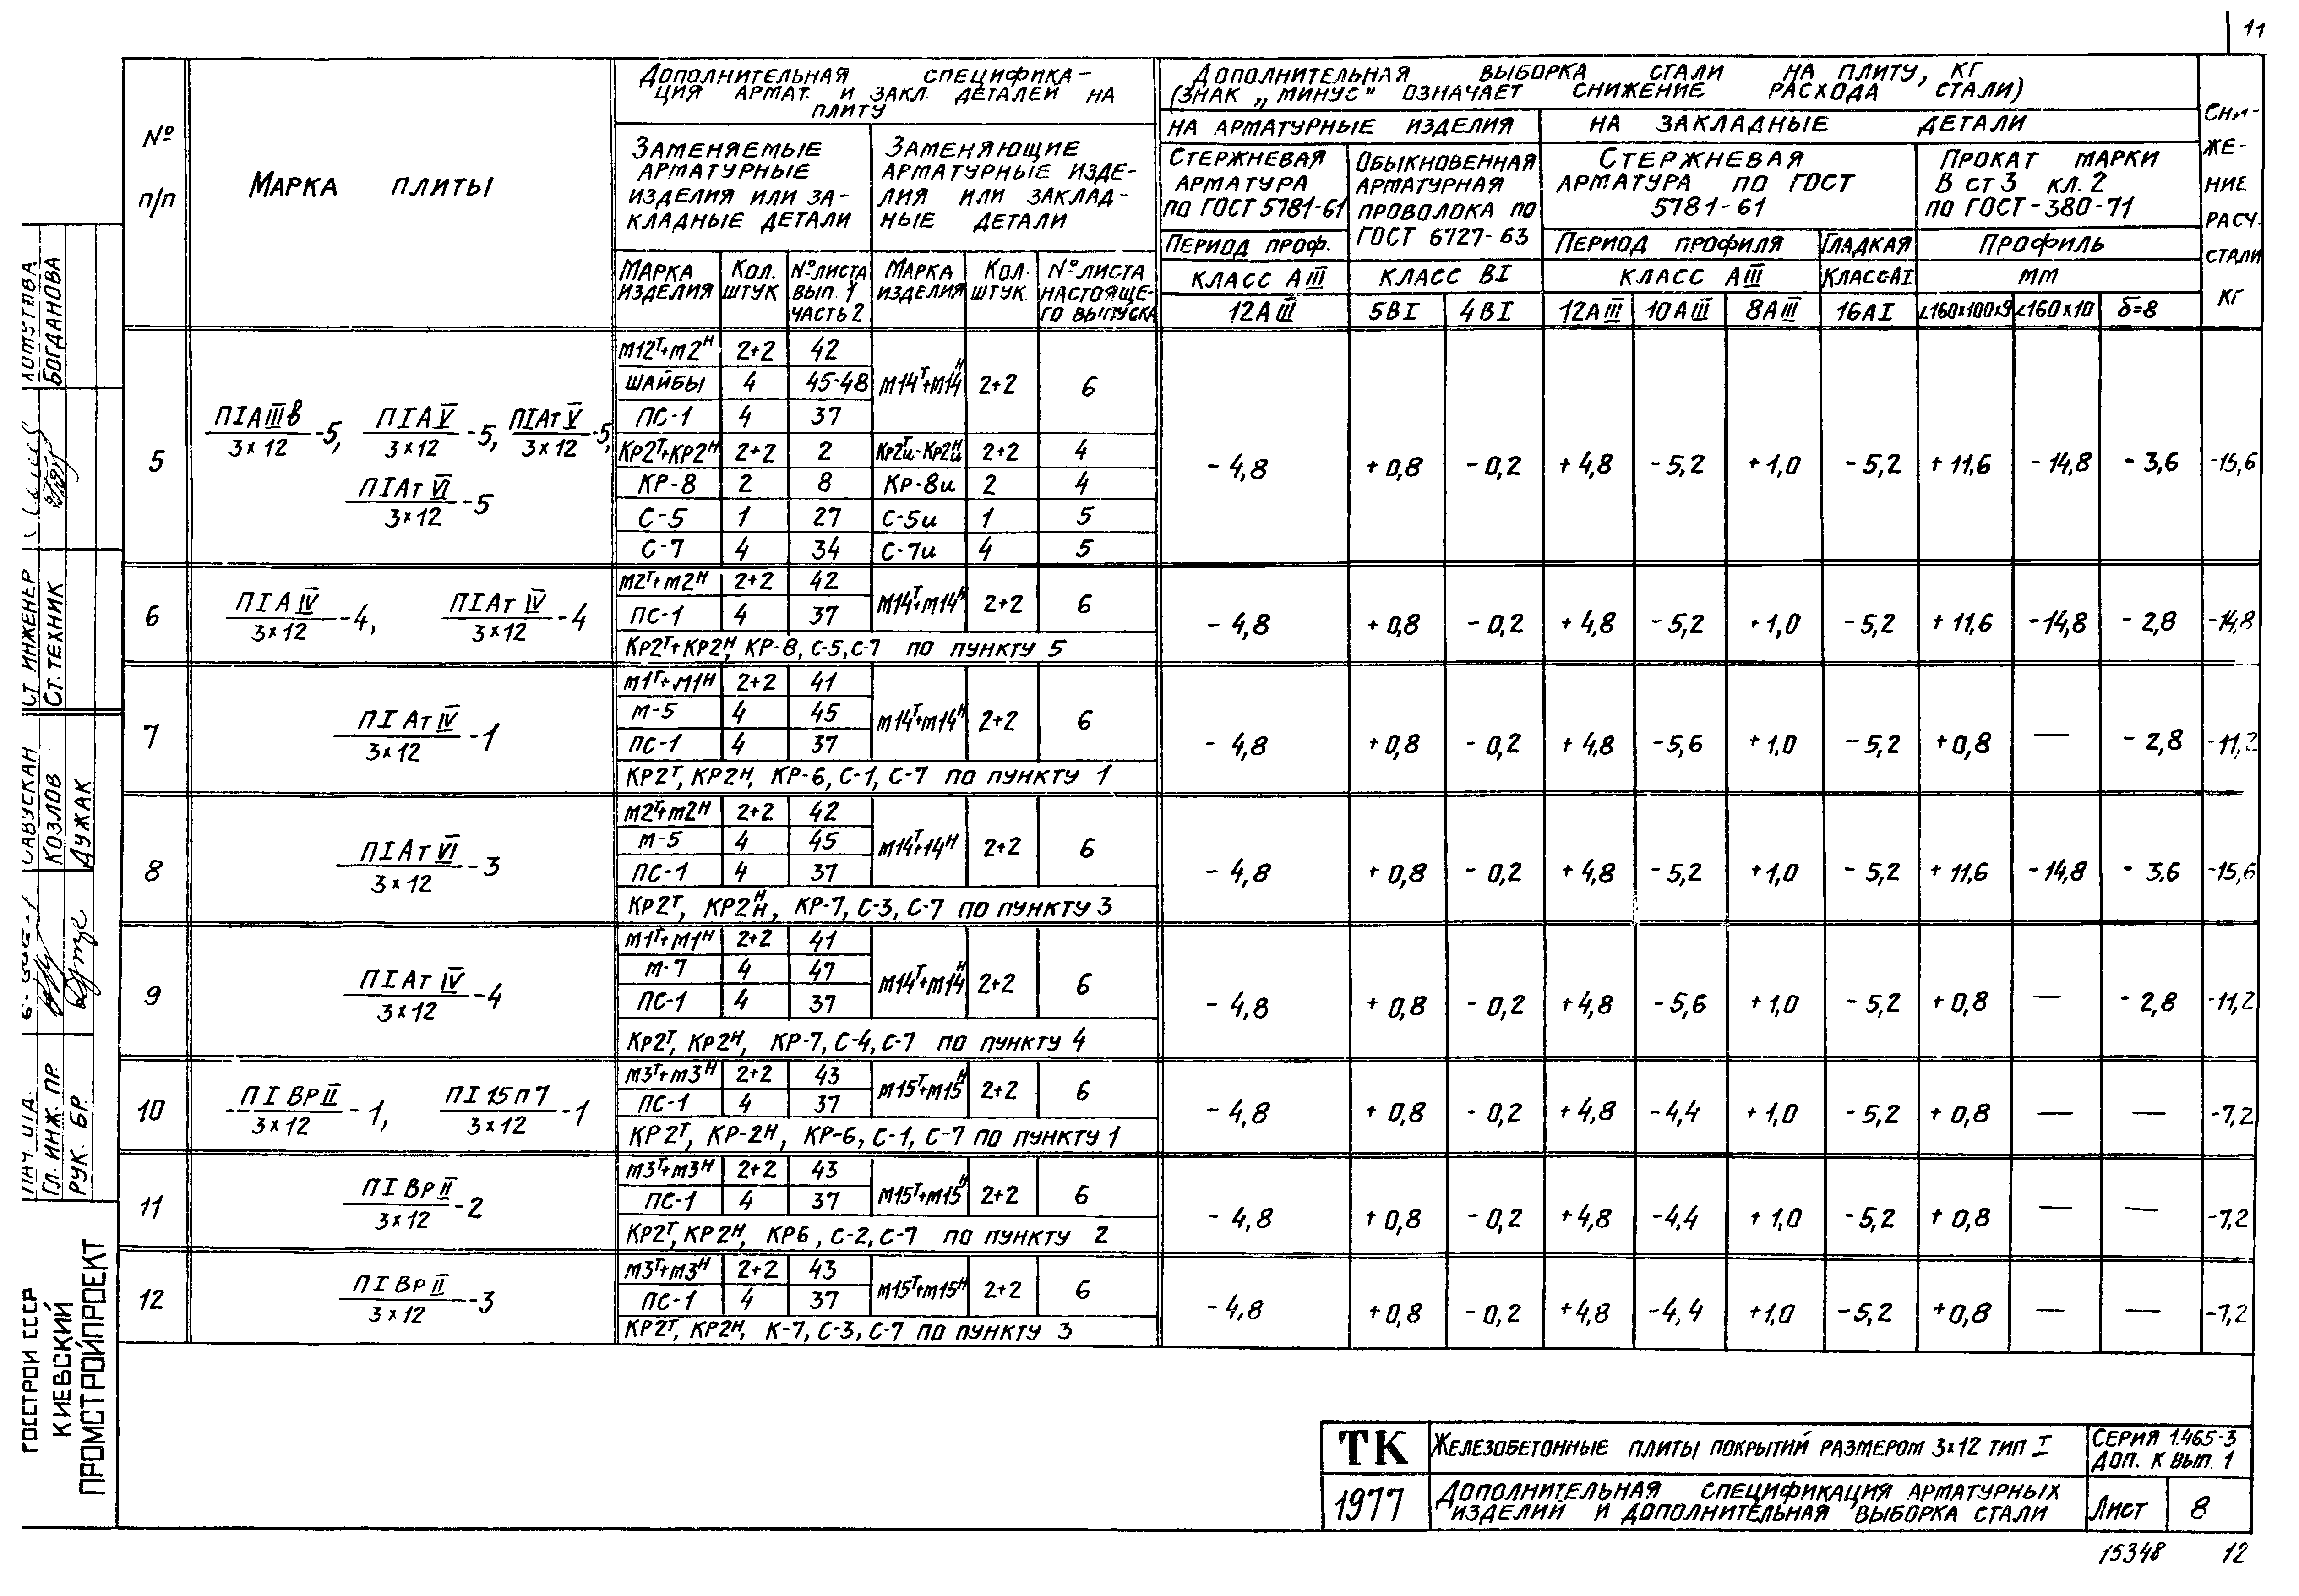 11
№ п/п
МАРКА ПЛИТЫ
ДОПОЛНИТЕЛЬНАЯ СПЕЦИФИКА-
ЦИЯ АРМАТ. И ЗАКЛ. ДЕТАЛЕЙ НА
ПЛИТУ
ДОПОЛНИТЕЛЬНАЯ ВЫБОРКА СТАЛИ НА ПЛИТУ, КГ
(ЗНАК „МИНУС" ОЗНАЧАЕТ СНИЖЕНИЕ РАСХОДА СТАЛИ)
СНИ-
ЖЕ-
НИЕ
РАСЧ.
СТАЛИ
КГ
ЗАМЕНЯЕМЫЕ
АРМАТУРНЫЕ
ИЗДЕЛИЯ ИЛИ ЗА-
КЛАДНЫЕ ДЕТАЛИ
ЗАМЕНЯЮЩИЕ
АРМАТУРНЫЕ ИЗДЕ-
ЛИЯ ИЛИ ЗАКЛАД-
НЫЕ ДЕТАЛИ
НА АРМАТУРНЫЕ ИЗДЕЛИЯ
НА ЗАКЛАДНЫЕ ДЕТАЛИ
СТЕРЖНЕВАЯ
АРМАТУРА
ПО ГОСТ 5781-61
ОБЫКНОВЕННАЯ
АРМАТУРНАЯ
ПРОВОЛОКА ПО
ГОСТ 6727-63
СТЕРЖНЕВАЯ
АРМАТУРА ПО ГОСТ
5781-61
ПРОКАТ МАРКИ
В СТ 3 КЛ. 2
ПО ГОСТ-380-71
ПЕРИОД ПРОФ.
ПЕРИОД ПРОФИЛЯ
ГЛАДКАЯ
ПРОФИЛЬ
МАРКА
ИЗДЕЛИЯ
КОЛ.
ШТУК
№ ЛИСТА
ВЫП. 1
ЧАСТЬ 2
МАРКА
ИЗДЕЛИЯ
КОЛ.
ШТУК.
№ ЛИСТА
НАСТОЯЩЕ-
ГО ВЫПУСКА
КЛАСС АIII
КЛАСС ВI
КЛАСС АIII
КЛАСС АI
ММ
12АIII 5ВI 4ВI 12АIII 10АIII 8АIII 16АI ∠160×100×9 ∠160×10 δ=8
5
ПIАIIIв/3×12-5, ПIАV/3×12-5, ПIАтV/3×12-5,
ПIАтVI/3×12-5
М12Т+М2Н 2+2 42
ШАЙБЫ 4 45-48 М14Т+М14Н 2+2 6
ПС-1 4 37
КР2Т+КР2Н 2+2 2 КР2Ти-КР2Ни 2+2 4
КР-8 2 8 КР-8и 2 4
С-5 1 27 С-5и 1 5
С-7 4 34 С-7и 4 5
-4,8 +0,8 -0,2 +4,8 -5,2 +1,0 -5,2 +11,6 -14,8 -3,6 -15,6
6
ПIАIV/3×12-4, ПIАтIV/3×12-4
М2Т+М2Н 2+2 42
ПС-1 4 37 М14Т+М14Н 2+2 6
КР2Т+КР2Н, КР-8, С-5, С-7 ПО ПУНКТУ 5
-4,8 +0,8 -0,2 +4,8 -5,2 +1,0 -5,2 +11,6 -14,8 -2,8 -14,8
7
ПIАтIV/3×12-1
М1Т+М1Н 2+2 41
М-5 4 45 М14Т+М14Н 2+2 6
ПС-1 4 37
КР2Т, КР2Н, КР-6, С-1, С-7 ПО ПУНКТУ 1
-4,8 +0,8 -0,2 +4,8 -5,6 +1,0 -5,2 +0,8 — -2,8 -11,2
8
ПIАтVI/3×12-3
М2Т+М2Н 2+2 42
М-5 4 45 М14Т+14Н 2+2 6
ПС-1 4 37
КР2Т, КР2Н, КР-7, С-3, С-7 ПО ПУНКТУ 3
-4,8 +0,8 -0,2 +4,8 -5,2 +1,0 -5,2 +11,6 -14,8 -3,6 -15,6
9
ПIАтIV/3×12-4
М1Т+М1Н 2+2 41
М-7 4 47 М14Т+М14Н 2+2 6
ПС-1 4 37
КР2Т, КР2Н, КР-7, С-4, С-7 ПО ПУНКТУ 4
-4,8 +0,8 -0,2 +4,8 -5,6 +1,0 -5,2 +0,8 — -2,8 -11,2
10
ПIВРII/3×12-1, ПI15П7/3×12-1
М3Т+М3Н 2+2 43
ПС-1 4 37 М15Т+М15Н 2+2 6
КР2Т, КР-2Н, КР-6, С-1, С-7 ПО ПУНКТУ 1
-4,8 +0,8 -0,2 +4,8 -4,4 +1,0 -5,2 +0,8 — — -7,2
11
ПIВРII/3×12-2
М3Т+М3Н 2+2 43
ПС-1 4 37 М15Т+М15Н 2+2 6
КР2Т, КР2Н, КР6, С-2, С-7 ПО ПУНКТУ 2
-4,8 +0,8 -0,2 +4,8 -4,4 +1,0 -5,2 +0,8 — — -7,2
12
ПIВРII/3×12-3
М3Т+М3Н 2+2 43
ПС-1 4 37 М15Т+М15Н 2+2 6
КР2Т, КР2Н, К-7, С-3, С-7 ПО ПУНКТУ 3
-4,8 +0,8 -0,2 +4,8 -4,4 +1,0 -5,2 +0,8 — — -7,2
ТК
1977
ЖЕЛЕЗОБЕТОННЫЕ ПЛИТЫ ПОКРЫТИЙ РАЗМЕРОМ 3×12 ТИП I
СЕРИЯ 1.465-3
ДОП. К ВЫП. 1
ДОПОЛНИТЕЛЬНАЯ СПЕЦИФИКАЦИЯ АРМАТУРНЫХ
ИЗДЕЛИЙ И ДОПОЛНИТЕЛЬНАЯ ВЫБОРКА СТАЛИ
ЛИСТ 8
15348 12
БОГДАНОВА
СТ ИНЖЕНЕР
СТ. ТЕХНИК
КОЗЛОВ
ДУЖАК
ГЛ. ИНЖ. ПР.
РУК. БР.
ГОССТРОЙ СССР
КИЕВСКИЙ
ПРОМСТРОЙПРОЕКТ